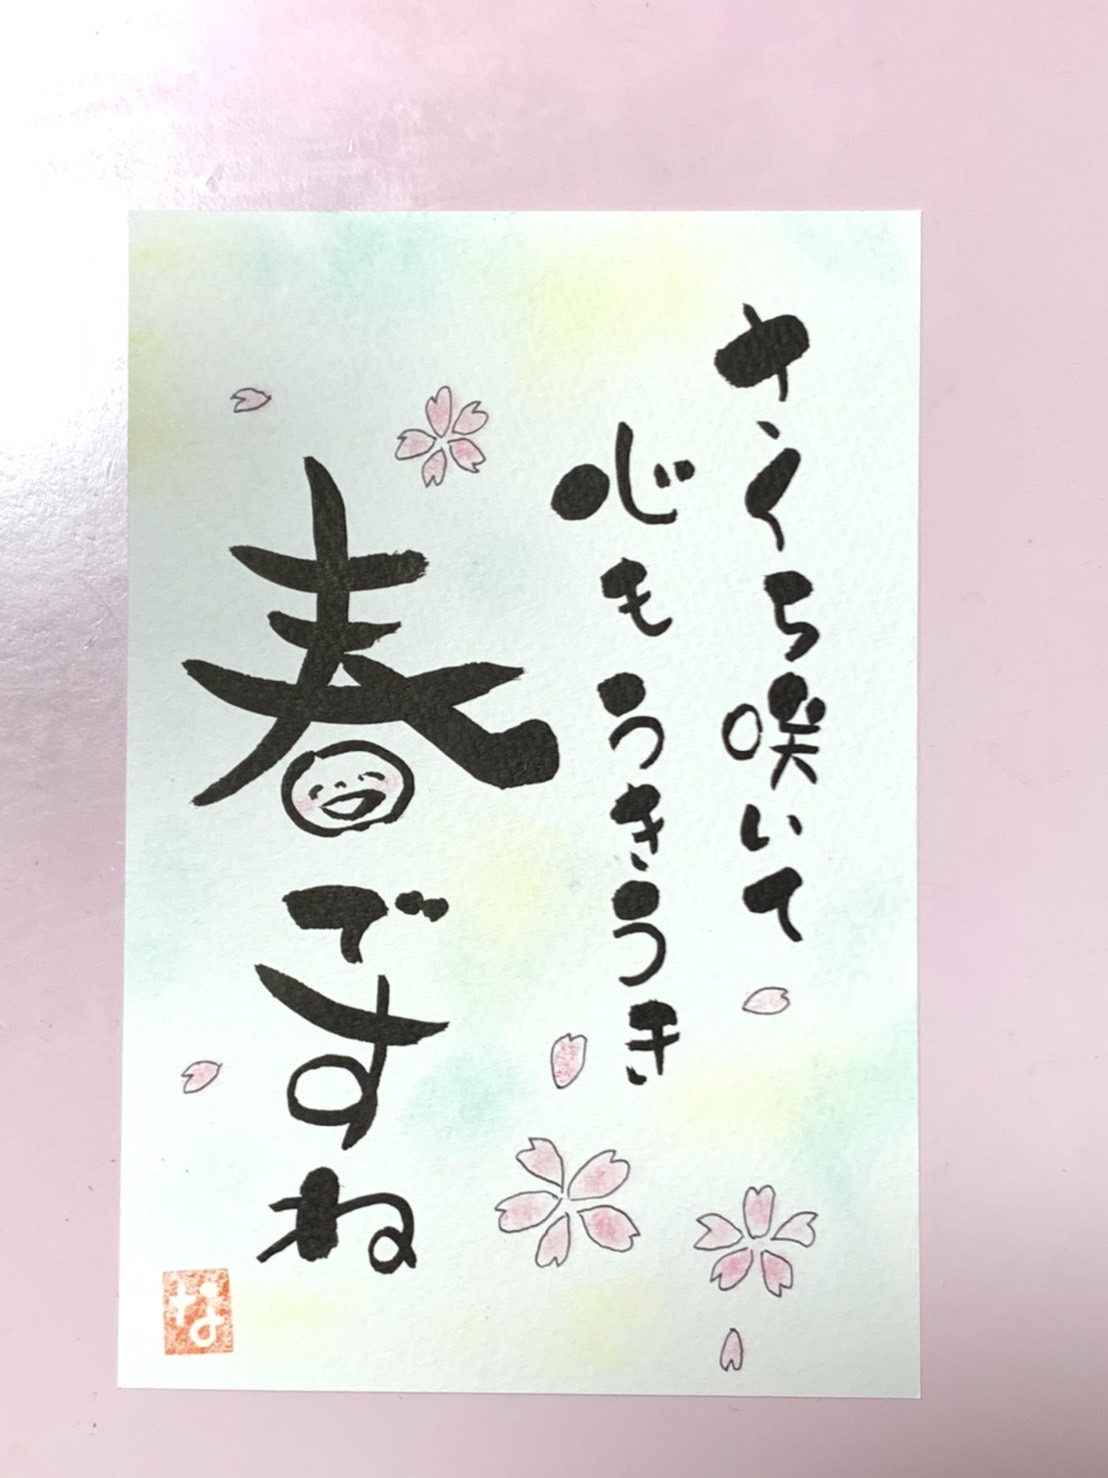 さくら咲いて
心もうきうき
春ですね
な